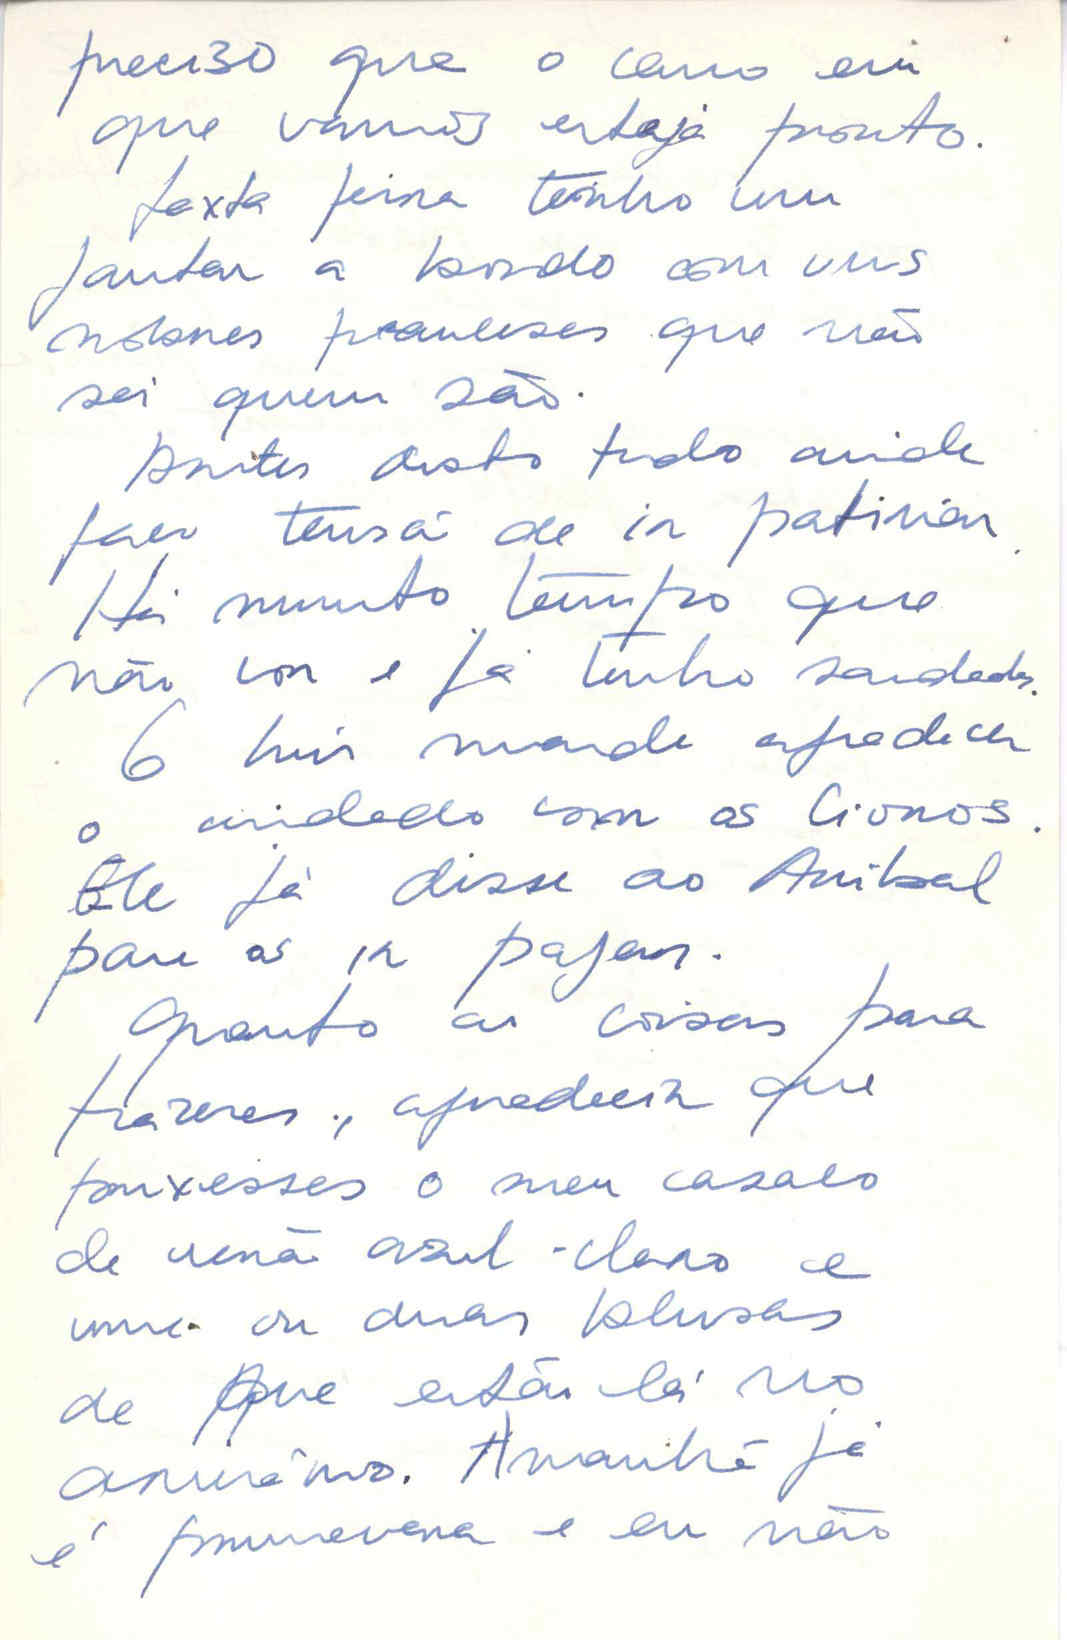 preciso que o carro em
que vamos esteja pronto.
Sexta feira tenho um
jantar a bordo com uns
nobres franceses que não
sei quem são.
Antes disto tudo ainda
faço tensã de ir patinar.
Há muito tempo que
não vou e já tenho saudades.
O Luis manda agradecer
o cuidado com os livros.
Ele já disse ao Anibal
para os ir pagar.
Quanto as coisas para
trazeres, agradecia que
trouxesses o meu casaco
de
azul-claro e
uma ou duas blusas
de que estão lá no
armário. Amanhã já
é primavera e eu não